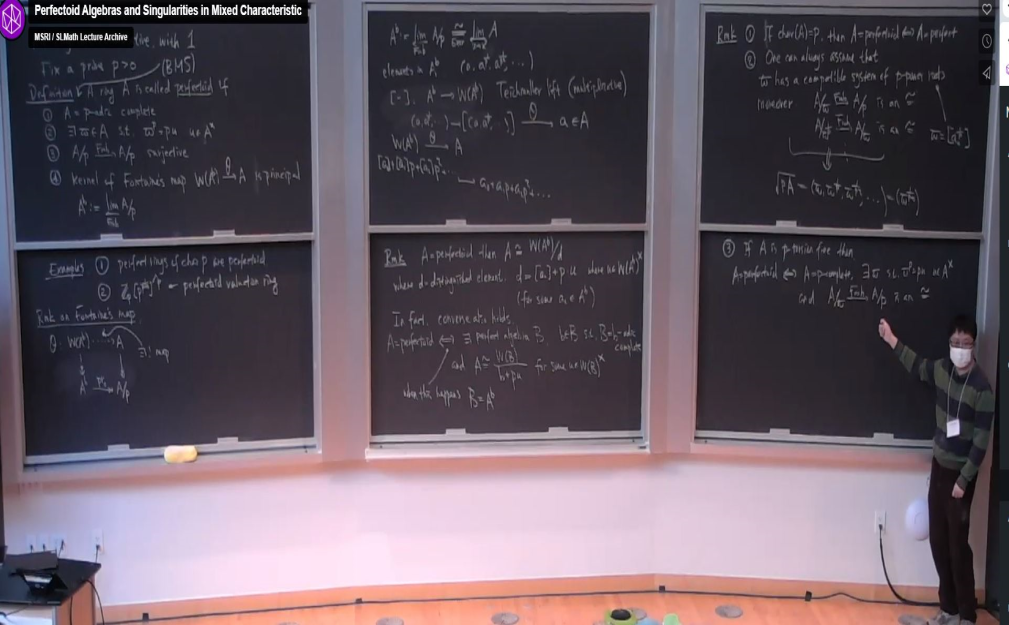 Perfectoid Algebras and Singularities in Mixed Characteristic
MSRI / SLMath Lecture Archive
with 1
Fix a prime p>0 (BMS)
Definition A ring A is called perfectoid if
① A = p-adic complete
② ∃ϖ∈A s.t. ϖᵖ=pu u∈Aˣ
③ A/p Frob→ A/p surjective
④ kernel of Fontaine's map W(A♭) θ→ A is principal
A♭ := lim Frob A/p
Examples ① perfect rings of char p are perfectoid
② perfectoid valuation ring
Rmk on Fontaine's map
θ: W(A♭) ⋯→ A
∃! map
A♭ → A/p
A♭ = lim A/p ≅ lim A
elements in A♭
[-]: A♭ → W(A♭) Teichmuller lift (multiplicative)
θ→ a∈A
W(A♭) θ→ A
[a₀]+[a₁]p+[a₂]p²...
→ a₀+a₁p+a₂p²+...
Rmk A=perfectoid then A ≅ W(A♭)/d
where d=distinguished element. d=[a₀]+pu where u∈W(A♭)ˣ
(for some a₀∈A♭)
In fact, converse also holds.
A=perfectoid ⟺ ∃ perfect algebra B, b∈B s.t. B=b-adic complete
and A ≅ W(B)/b+pu for some u∈W(B)ˣ
when this happens B=A♭
Rmk ① If char(A)=p, then A=perfectoid ⟺ A=perfect
② One can always assume that
ϖ has a compatible system of p-power roots
moreover A/ϖ Frob→ A/p is an ≅
③ If A is p-torsion free then
A=perfectoid ⟺ A=p-complete, ∃ϖ s.t. ϖᵖ=pu u∈Aˣ
and A/ϖ Frob→ A/p is an ≅